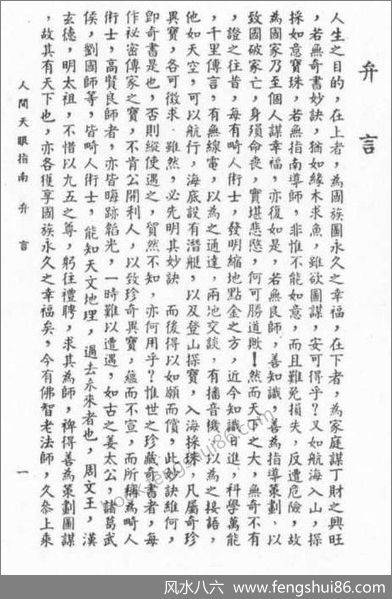 弁言
人生之目的,在上者,為國族圖永久之幸福,在下者,為家庭謀丁財之興旺
,若無奇書妙訣,猶如緣木求魚,雖欲圖謀,安可得乎?又如航海入山,探
採如意寶珠,若無指南導師,非惟不能如意,而且難免損失,反遭危險,故
為國家乃至個人謀幸福,亦復如是,若無良師,善知識,善為指導策劃,以
致國破家亡,身殞命喪,實堪悲愍,何可勝道哉!然而天下之大,無奇不有
,證之往昔,每有畸人術士,發明縮地點金之方,近今知識日進,科學萬能
,千里傳言,有無線電,以為之通達,兩地交談,有播音機,以為之接語,
他如天空,可以航行,海底設有潛艇,以及登山探寶,入海採珠,凡屬奇珍
異寶,各可徵求.雖然,必先明其妙訣 而後得以如願而償,此妙訣維何,
即奇書是也,否則縱使遇之,貿然不知,亦何用乎?惟世之珍藏奇書者,每
作祕密傳家之寶,不肯公開利人,以致珍奇異寶,蘊而不宣,而所稱為畸人
術士,高賢良師者,亦皆晦跡韜光,一時難以遭遇,如古之姜太公,諸葛武
侯,劉國師等,皆畸人術士,能知天文地理,過去未來者也,周文王,漢
玄德,明太祖,不惜以九五之尊,躬往禮聘,求其為師,裨得善為策劃圖謀
,故其有天下也,亦各獲享國族永久之幸福矣,今有佛智老法師,久參上乘
人間天眼指南 弁言 一
www.fengshui86.com
风水八六 www.fengshui86.com